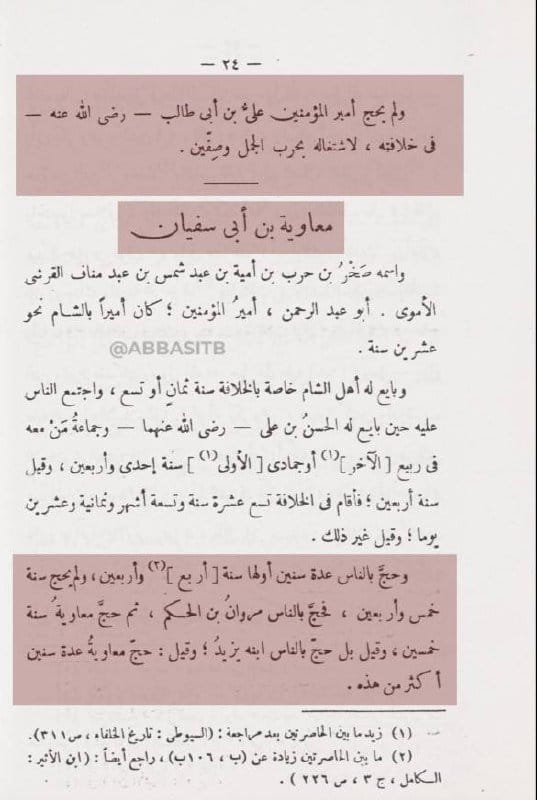 — ٢٤ —
ولم يحج أمير المؤمنين علىُّ بن أبى طالب — رضى الله عنه —
فى خلافته ، لاشتغاله بحرب الجمل وصِفِّين .
معاوية بن أبى سفيان
واسمه صَخْرُ بن حرب بن أمية بن عبد شمس بن عبد مناف القرشى
الأموى . أبو عبد الرحمن ، أميرُ المؤمنين ؛ كان أميراً بالشام نحو
عشرين سنة .
@ABBASITB
وبايع له أهل الشام خاصة بالخلافة سنة ثمانٍ أو تسع ، واجتمع الناس
عليه حين بايع له الحسنُ بن على — رضى الله عنهما — وجماعةُ مَنْ معه
فى ربيع [ الآخر ](١) أو جمادى [ الأولى(١) ] سنة إحدى وأربعين ، وقيل
سنة أربعين ؛ فأقام فى الخلافة تسع عشرة سنة وتسعة أشهر وثمانية وعشرين
يوما ؛ وقيل غير ذلك .
وحجَّ بالناس عدة سنين أولها سنة [ أربع ](٢) وأربعين ، ولم يحج سنة
خمس وأربعين ، فحجَّ بالناس مروانُ بن الحكم ، ثم حجَّ معاويةُ سنة
خمسين ، وقيل بل حجّ بالناس ابنه يزيدُ ؛ وقيل : حجّ معاويةُ عدة سنين
أكثر من هذه .
(١) زيد ما بين الحاصرتين بعد مراجعة : (السيوطى : تاريخ الخلفاء ، ص ٣١١).
(٢) ما بين الحاصرتين زيادة عن (ب ، ١٠٦ب) ، راجع أيضاً : (ابن الأثير :
الكامل ، ج ٣ ، ص ٢٢٦ ) .